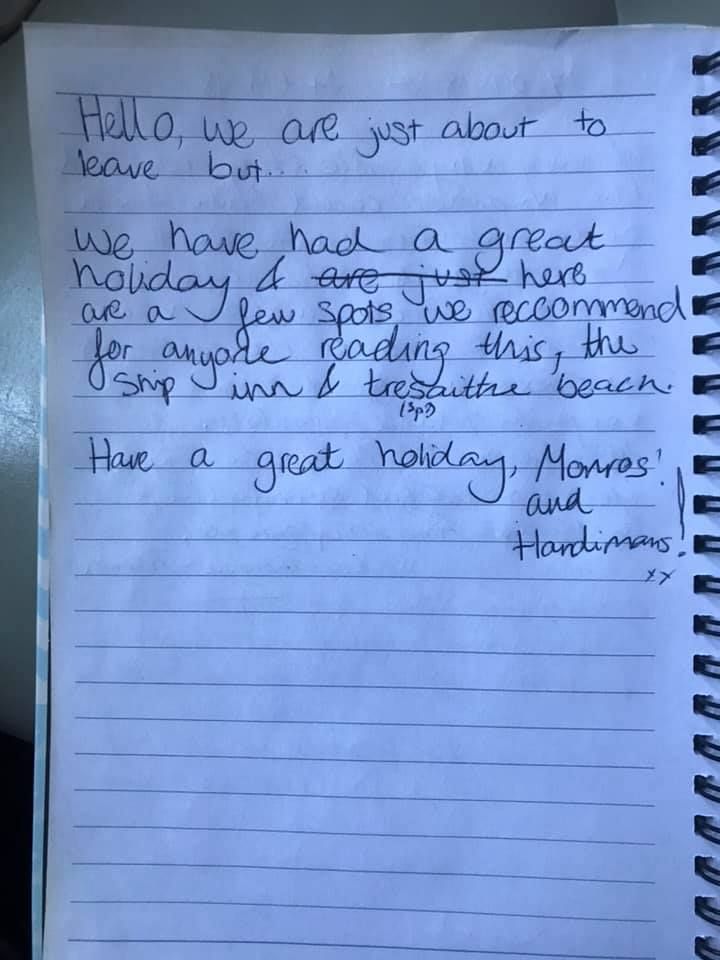 Hello, we are just about to
leave but...
We have had a great
holiday & are just here
are a few spots we reccommend
for anyone reading this, the
Ship inn & tresaithe beach.
(sp?)
Have a great holiday, Monros'
and
Hardimans!
xx